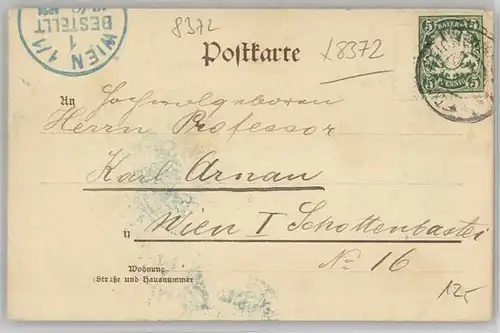 8372
WIEN 1/1
BESTELLT
1
Postkarte
x8372
BAYERN
5 5
5 5
An Hochwolgeboren
Herrn Professor
Karl Arnau
in Wien I Schottenbastei
No 16
Wohnung
(Straße und Hausnummer
12,-